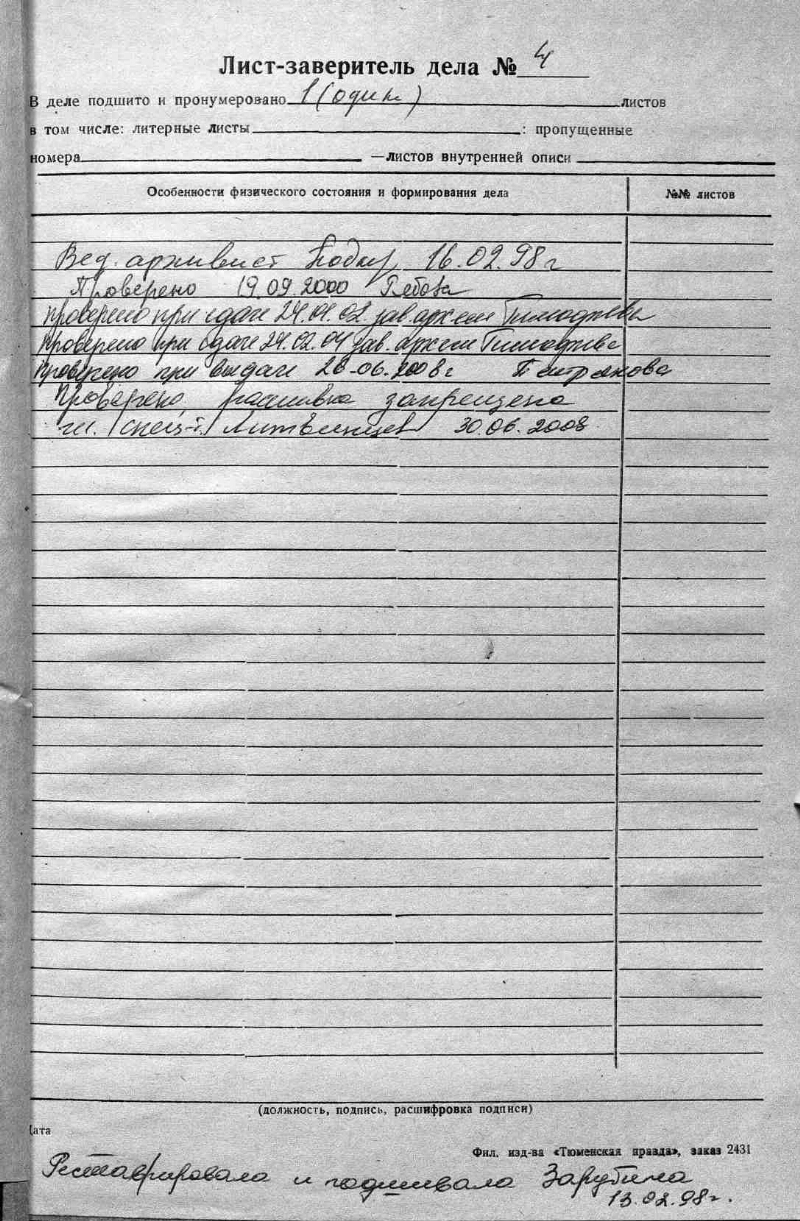 Лист-заверитель дела № 4
В деле подшито и пронумеровано 1 (один) листов
в том числе: литерные листы : пропущенные
номера —листов внутренней описи
Особенности физического состояния и формирования дела №№ листов
Вед. архивист 16.02.98 г
Проверено 19.09.2000
проверено при сдаче 24.01.02. зав. архом Тимофеева
проверено при сдаче 24.02.04 зав. архом Тимофеева
проверено при выдаче 26.06.2008 г
Проверено, расшивка запрещена
гл. спец-т Литвинцев 30.06.2008
(должность, подпись, расшифровка подписи)
Дата
Фил. изд-ва «Тюменская правда», заказ 2431
Реставрировала и подшивала Зарубина
13.02.98г.